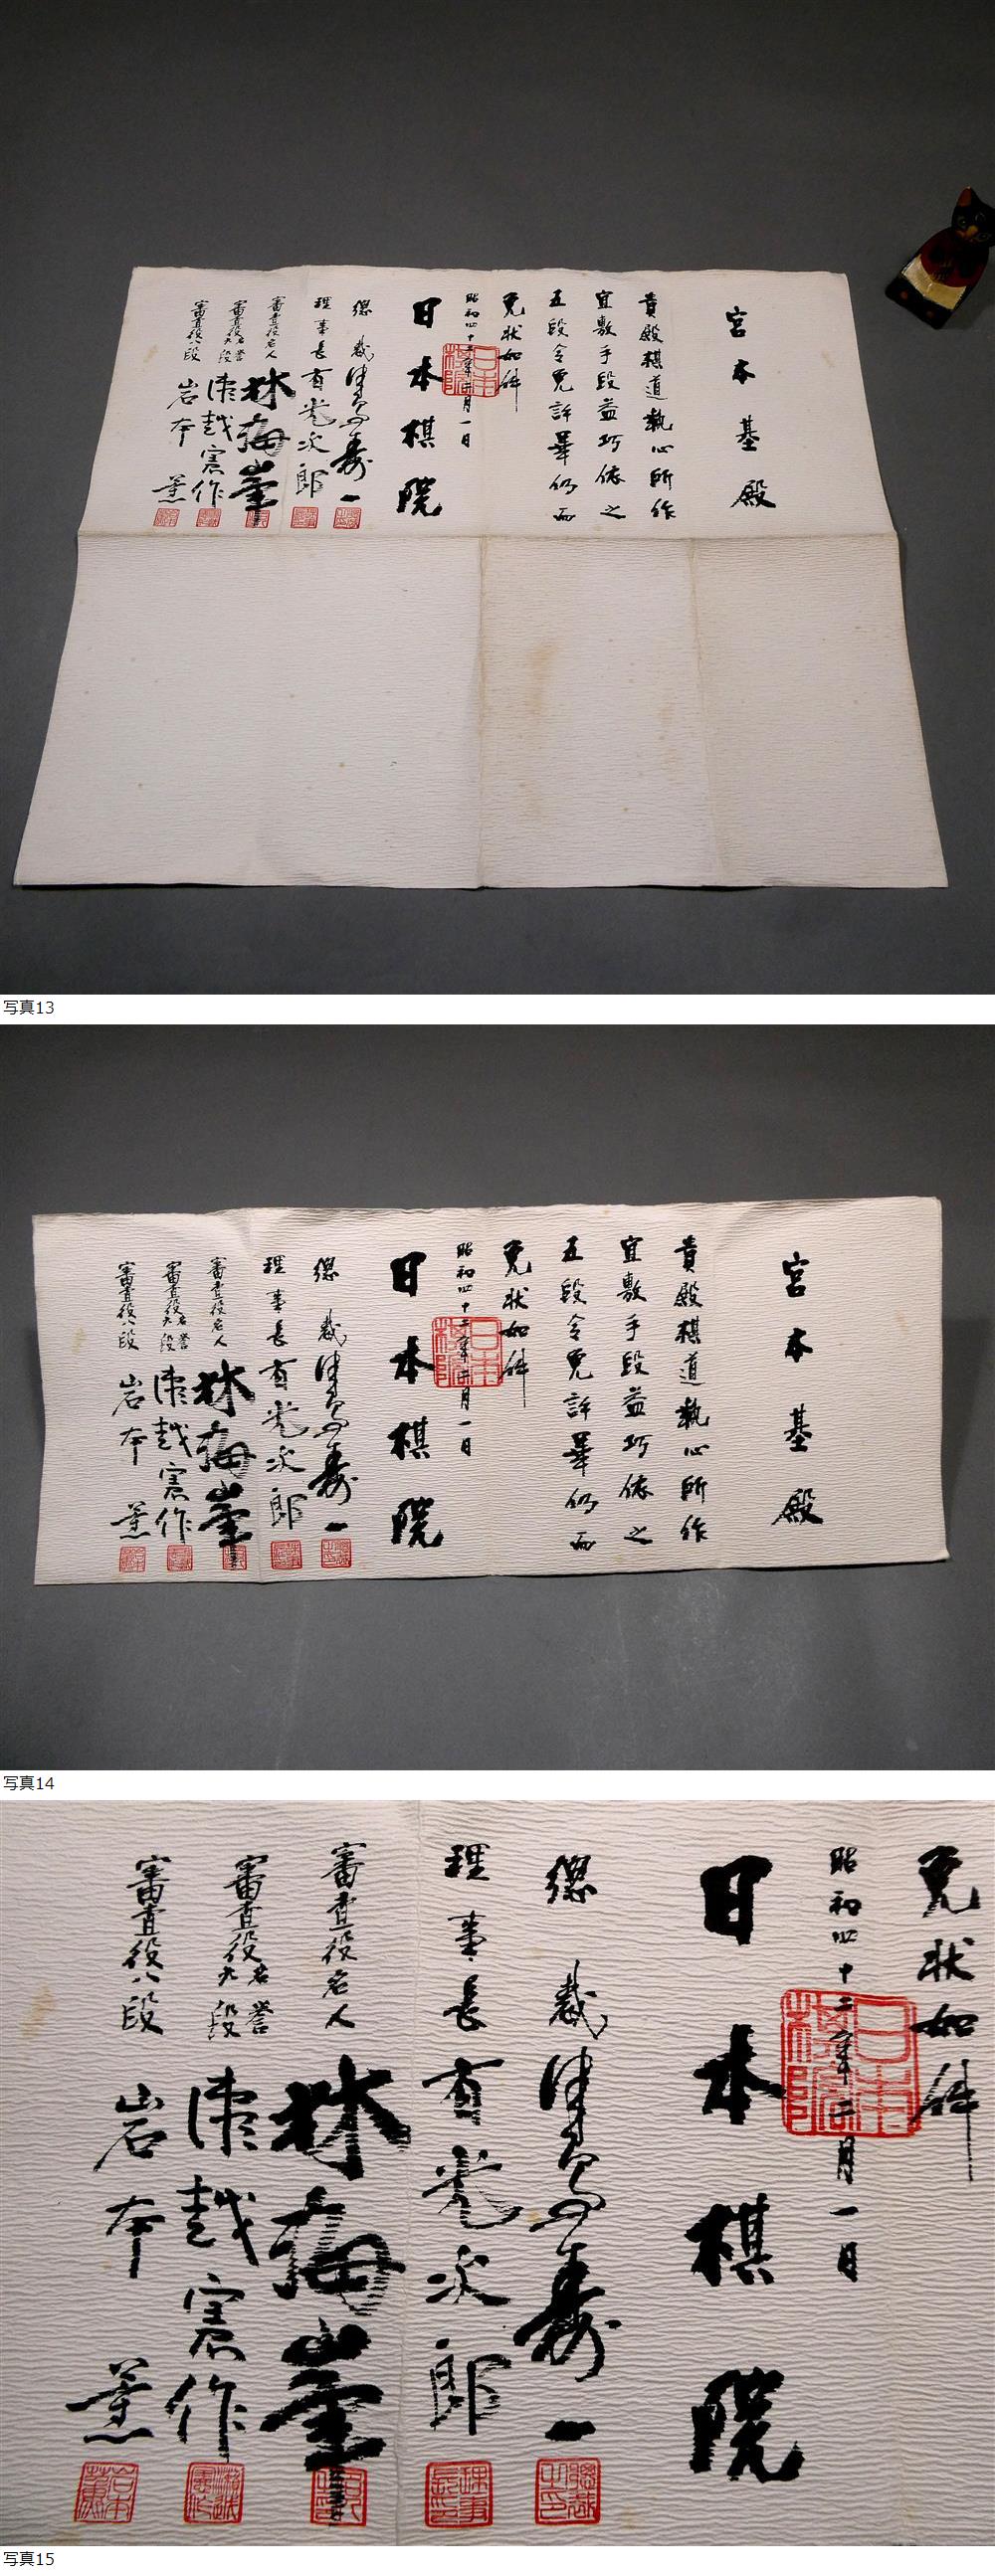 宮本基殿
貴殿棋道執心所作
宜敷手段益巧依之
五段令免許畢仍而
免状如件
昭和四十二年二月一日
日本棋院
総裁 津島寿一
理事長 有光次郎
審査役名人 林海峯
審査役名誉九段 瀬越憲作
審査役八段 岩本薫
写真13
宮本基殿
貴殿棋道執心所作
宜敷手段益巧依之
五段令免許畢仍而
免状如件
昭和四十二年二月一日
日本棋院
総裁 津島寿一
理事長 有光次郎
審査役名人 林海峯
審査役名誉九段 瀬越憲作
審査役八段 岩本薫
写真14
免状如件
昭和四十二年二月一日
日本棋院
総裁 津島寿一
理事長 有光次郎
審査役名人 林海峯
審査役名誉九段 瀬越憲作
審査役八段 岩本薫
写真15